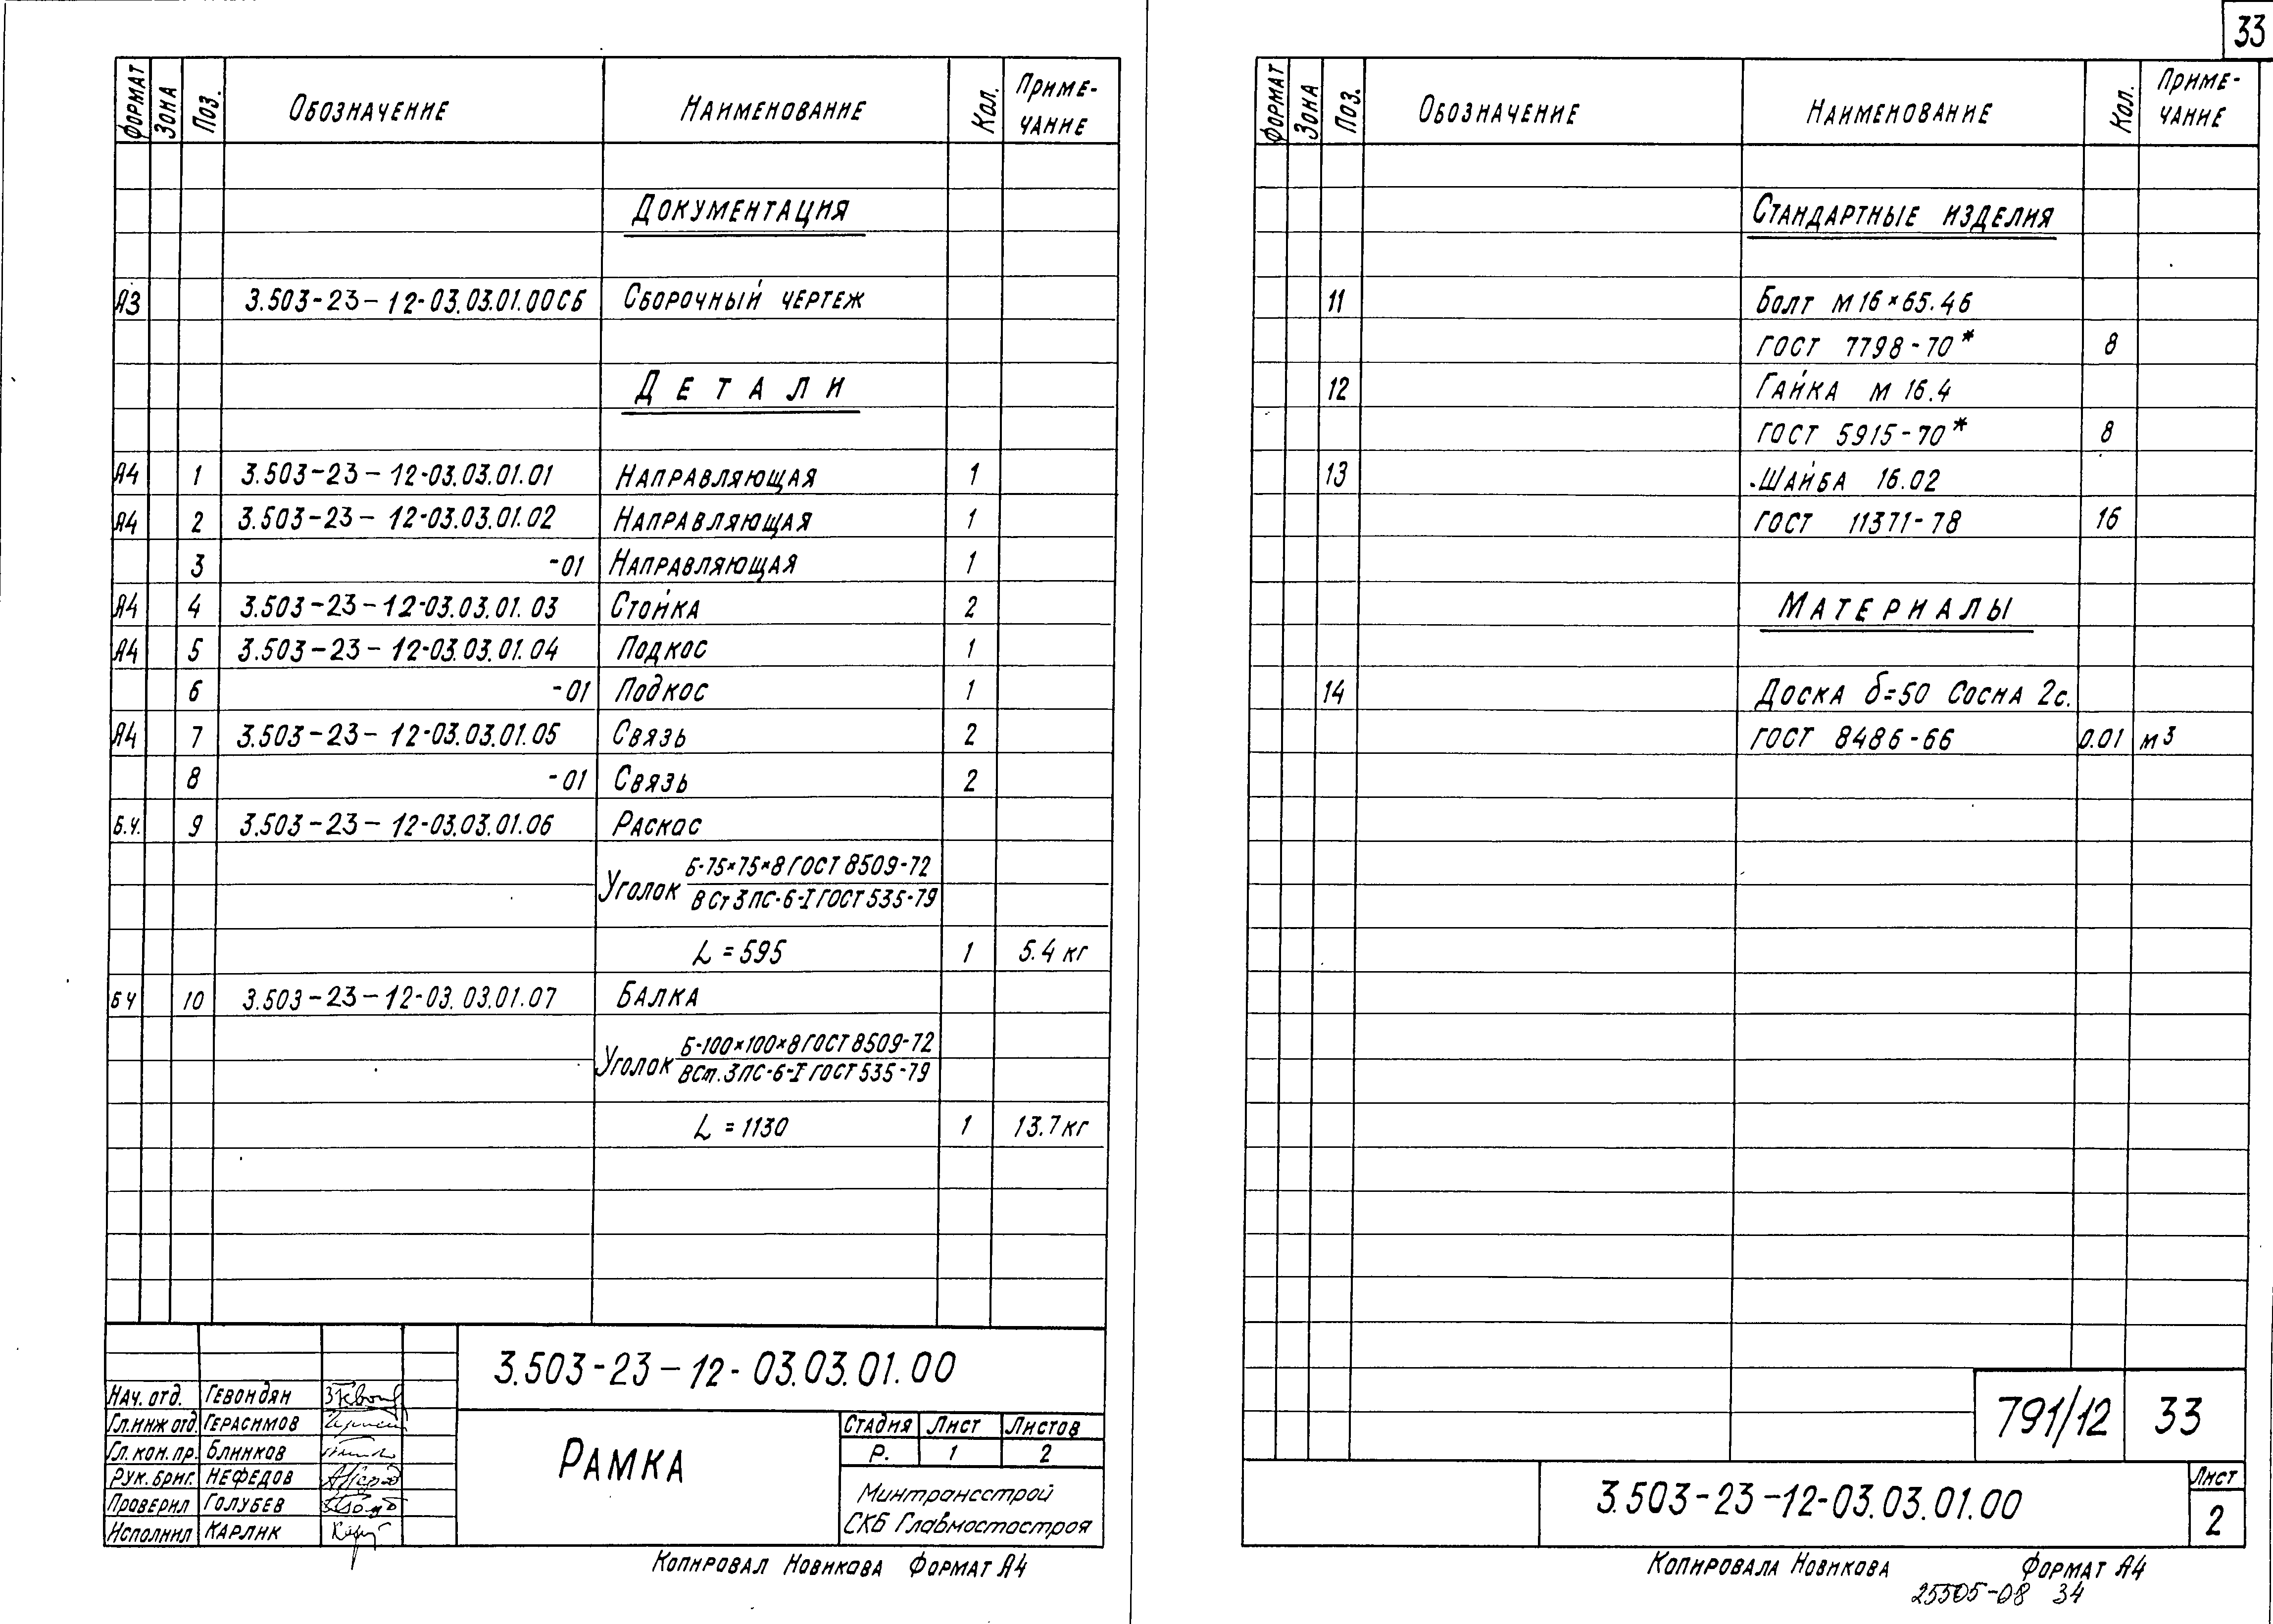 33
Формат Зона Поз. Обозначение Наименование Кол. Приме-
чание
Документация
А3 3.503-23-12-03.03.01.00СБ Сборочный чертеж
Детали
А4 1 3.503-23-12-03.03.01.01 Направляющая 1
А4 2 3.503-23-12-03.03.01.02 Направляющая 1
3 -01 Направляющая 1
А4 4 3.503-23-12-03.03.01.03 Стойка 2
А4 5 3.503-23-12-03.03.01.04 Подкос 1
6 -01 Подкос 1
А4 7 3.503-23-12-03.03.01.05 Связь 2
8 -01 Связь 2
Б.Ч. 9 3.503-23-12-03.03.01.06 Раскос
Б-75×75×8 ГОСТ 8509-72
Уголок
ВСт3ПС-6-I ГОСТ 535-79
L=595 1 5.4 кг
БЧ 10 3.503-23-12-03.03.01.07 Балка
Б-100×100×8 ГОСТ 8509-72
Уголок
ВСт.3ПС-6-I ГОСТ 535-79
L=1130 1 13.7 кг
3.503-23-12-03.03.01.00
Нач. отд. Гевондян
Гл.инж отд. Герасимов
Гл. кон. пр. Блинков
Рук. бриг. Нефедов
Проверил Голубев
Исполнил Карлик
Рамка
Стадия Лист Листов
Р. 1 2
Минтрансстрой
СКБ Главмостостроя
Копировал Новикова Формат А4
Формат Зона Поз. Обозначение Наименование Кол. Приме-
чание
Стандартные изделия
11 Болт М16×65.46
ГОСТ 7798-70* 8
12 Гайка М 16.4
ГОСТ 5915-70* 8
13 Шайба 16.02
ГОСТ 11371-78 16
Материалы
14 Доска δ=50 Сосна 2с.
ГОСТ 8486-66 0.01 м3
791/12 33
3.503-23-12-03.03.01.00
Лист
2
Копировала Новикова Формат А4
25505-08 34